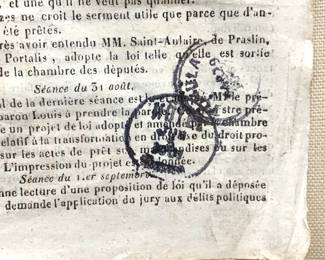 , et une qu'il ne veut pas qualifier.
zes ne croit le serment utile que parce que d'an-
été prêtés.
rès avoir entendu MM. Saint-Aulaire, de Praslin,
Portalis, adopte la loi telle qu'elle est sortie
de la chambre des députés.
Séance du 31 août.
al de la dernière séance est lu et M. le pré-
baron Louis à prendre la
e un projet de loi adopté et amendé
elatif à la transformation en du droit pro-
sur les actes de prêt sur marchandises ou sur les
L'impression du projet est ordonnée.
Séance du 1.er septembre
nne lecture d'une proposition de loi qu'il a déposée
demande l'application du jury aux délits politiques